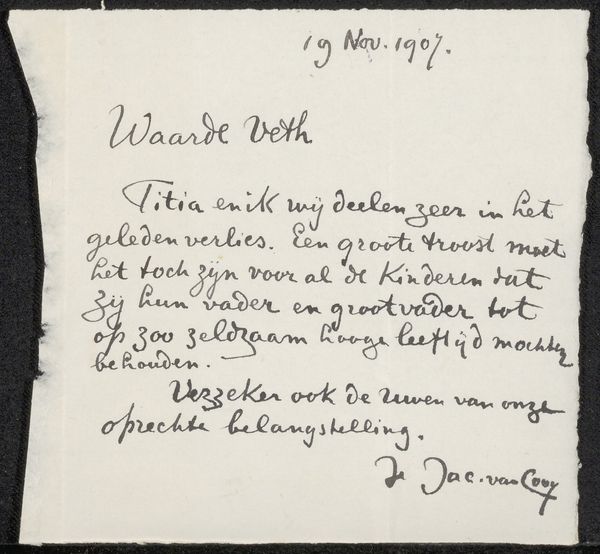 19 Nov. 1907.
Waarde Veth
Titia en ik wij deelen zeer in het
geleden verlies. Een groote troost moet
het toch zijn voor al de Kinderen dat
zij hun vader en grootvader tot
op zoo zeldzaam hooge leeftijd mochten
behouden.
Verzeker ook de uwen van onze
oprechte belangstelling.
Je Jac. van Looy